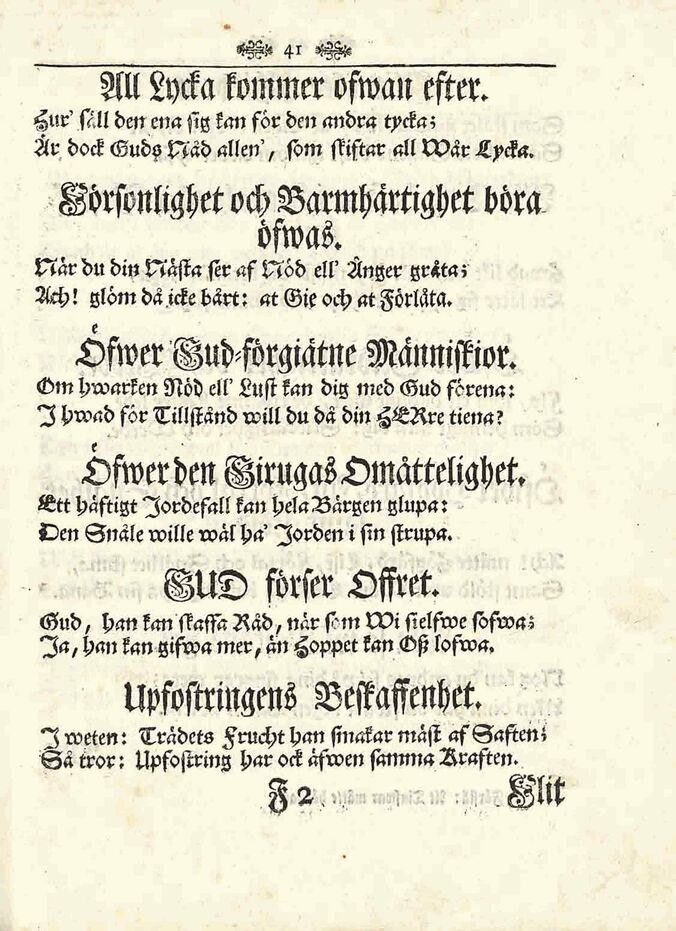 41
All Lycka kommer ofwan efter.
Hur' säll den ena sig kan för den andra tycka;
Är dock Guds Nåd allen', som skiftar all Wår Lycka.
Försonlighet och Barmhärtighet böra
öfwas.
När du din Nästa ser af Nöd ell' Ånger gråta;
Ach! glöm då icke bårt: at Gie och at Förlåta.
Öfwer Gud-förgiätne Människior.
Om hwarken Nöd ell' Lust kan dig med Gud förena:
I hwad för Tillstånd will du då din HERre tiena?
Öfwer den Girugas Omåttelighet.
Ett häftigt Jordefall kan hela Bärgen glupa:
Den Snåle wille wäl ha' Jorden i sin strupa.
GUD förser Offret.
Gud, han kan skaffa Råd, när som Wi sielfwe sofwa;
Ja, han kan gifwa mer, än Hoppet kan Oß lofwa.
Upfostringens Beskaffenhet.
I weten: Trädets Frucht han smakar mäst af Saften;
Så tror: Upfostring har ock äfwen samma Kraften.
F 2 Flit